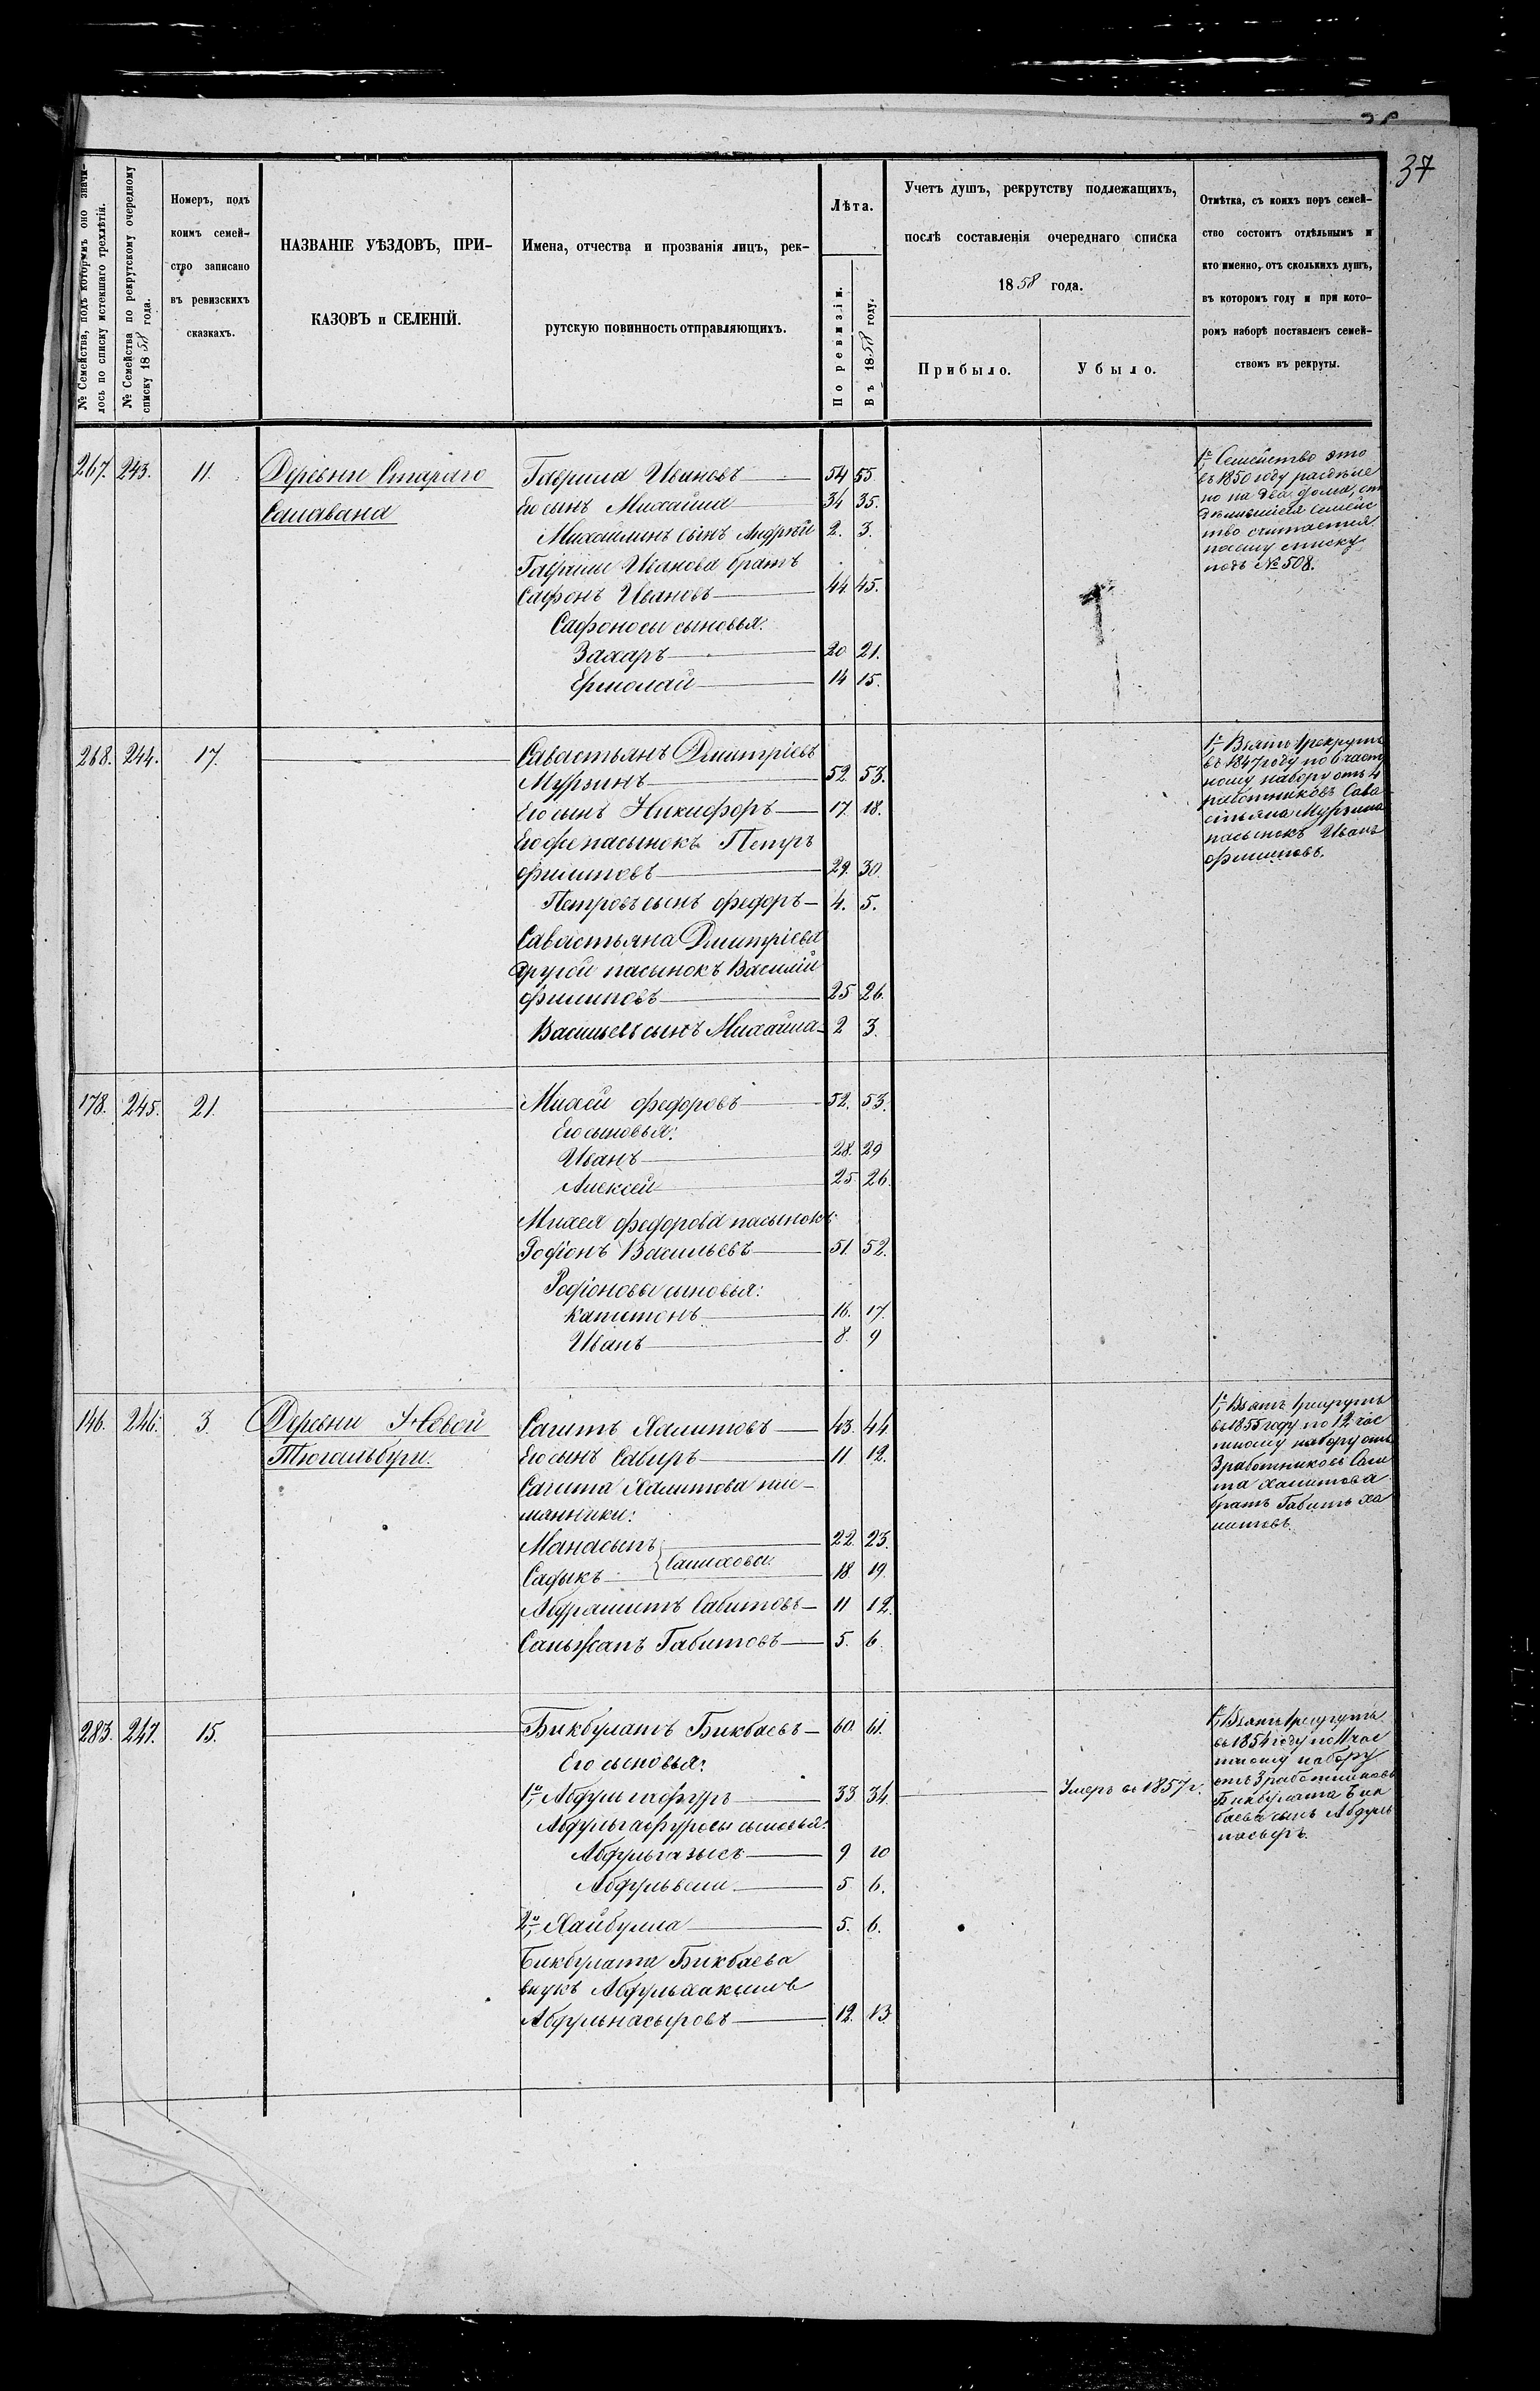 37
№ Семейства, подъ которымъ оно значилось по списку истекшаго трехлѣтія.
№ Семейства по рекрутскому очередному списку 1858 года.
Номеръ, подъ
коимъ семей-
ство записано
въ ревизскихъ
сказкахъ.
НАЗВАНІЕ УѢЗДОВЪ, ПРИ-
КАЗОВЪ и СЕЛЕНІЙ.
Имена, отчества и прозванія лицъ, рек-
рутскую повинность отправляющихъ.
Лѣта.
По ревизіи.
Въ 1858 году.
Учетъ душъ, рекрутству подлежащихъ,
послѣ составленія очереднаго списка
1858 года.
Прибыло.
Убыло.
Отмѣтка, съ коихъ поръ семей-
ство состоитъ отдѣльнымъ и
кто именно, отъ сколькихъ душъ,
въ которомъ году и при кото-
ромъ наборѣ поставленъ семей-
ствомъ въ рекруты.
267. 243. 11. Деревни Стараго Гаврила Ивановъ 54 55
Салавана Его сынъ Михайла 34 35.
Михайлинъ сынъ Андрей 2. 3.
Гаврилы Иванова братъ
Сафонъ Ивановъ 44 45.
Сафоновы сыновья:
Захаръ 20 21.
Ермолай 14 15.
1е Семейство это
въ 1850 году раздѣле
но на два дома, от
дѣлившееся семейс
тво считается
по сему списку
подъ № 508.
268. 244. 17. Савастьянъ Дмитріевъ
Мурзинъ 52. 53.
Его сынъ Никифоръ 17. 18.
Его же пасынокъ Петръ
Филиповъ 29. 30.
Петровъ сынъ Федоръ 4. 5.
Савастьяна Дмитріева
другой пасынокъ Василій
Филиповъ 25 26.
Васильевъ сынъ Михайла 2 3.
1е Взятъ 1 рекрутъ
въ 1847 году по 6 част
ному набору отъ 4
работниковъ Сава
стьяна Мурзина
пасынокъ Иванъ
Филиповъ.
178. 245. 21. Михей Федоровъ 52. 53.
Его сыновья:
Иванъ 28. 29
Алексей 25 26.
Михея Федорова пасынокъ
Родіонъ Васильевъ 51 52.
Родіоновы сыновья:
Капитонъ 16. 17.
Иванъ 8. 9
146. 246. 3. Деревни Новой Сагитъ Халитовъ 43. 44
Тюгальбуги. Его сынъ Сабиръ 11 12.
Сагита Халитова пле-
мянники:
Манасыпъ 22. 23.
Салиховы
Садыкъ 18. 19.
Абдрашитъ Сабитовъ 11 12.
Санжапъ Габитовъ 5. 6.
1е Взятъ 1 рекрутъ
въ 1855 году по 12 час
тному набору отъ
3 работниковъ Саги
та Халитова
братъ Габитъ Ха
литовъ.
283. 247. 15. Бикбулатъ Бикбаевъ 60 61.
Его сыновья:
1й, Абдулгафуръ 33 34. Умеръ въ 1857 г.
Абдулгафуровы сыновья:
Абдулгазисъ 9 10
Абдулвели 5 6.
2й, Хайбулла 5. 6.
Бикбулата Бикбаева
внукъ Абдулхакимъ
Абдульнасыровъ 12. 13
1е, Взятъ 1 рекрутъ
въ 1854 году по 11 час
тному набору
отъ 3 работниковъ
Бикбулата Бик
баева сынъ Абдуль
насыръ.